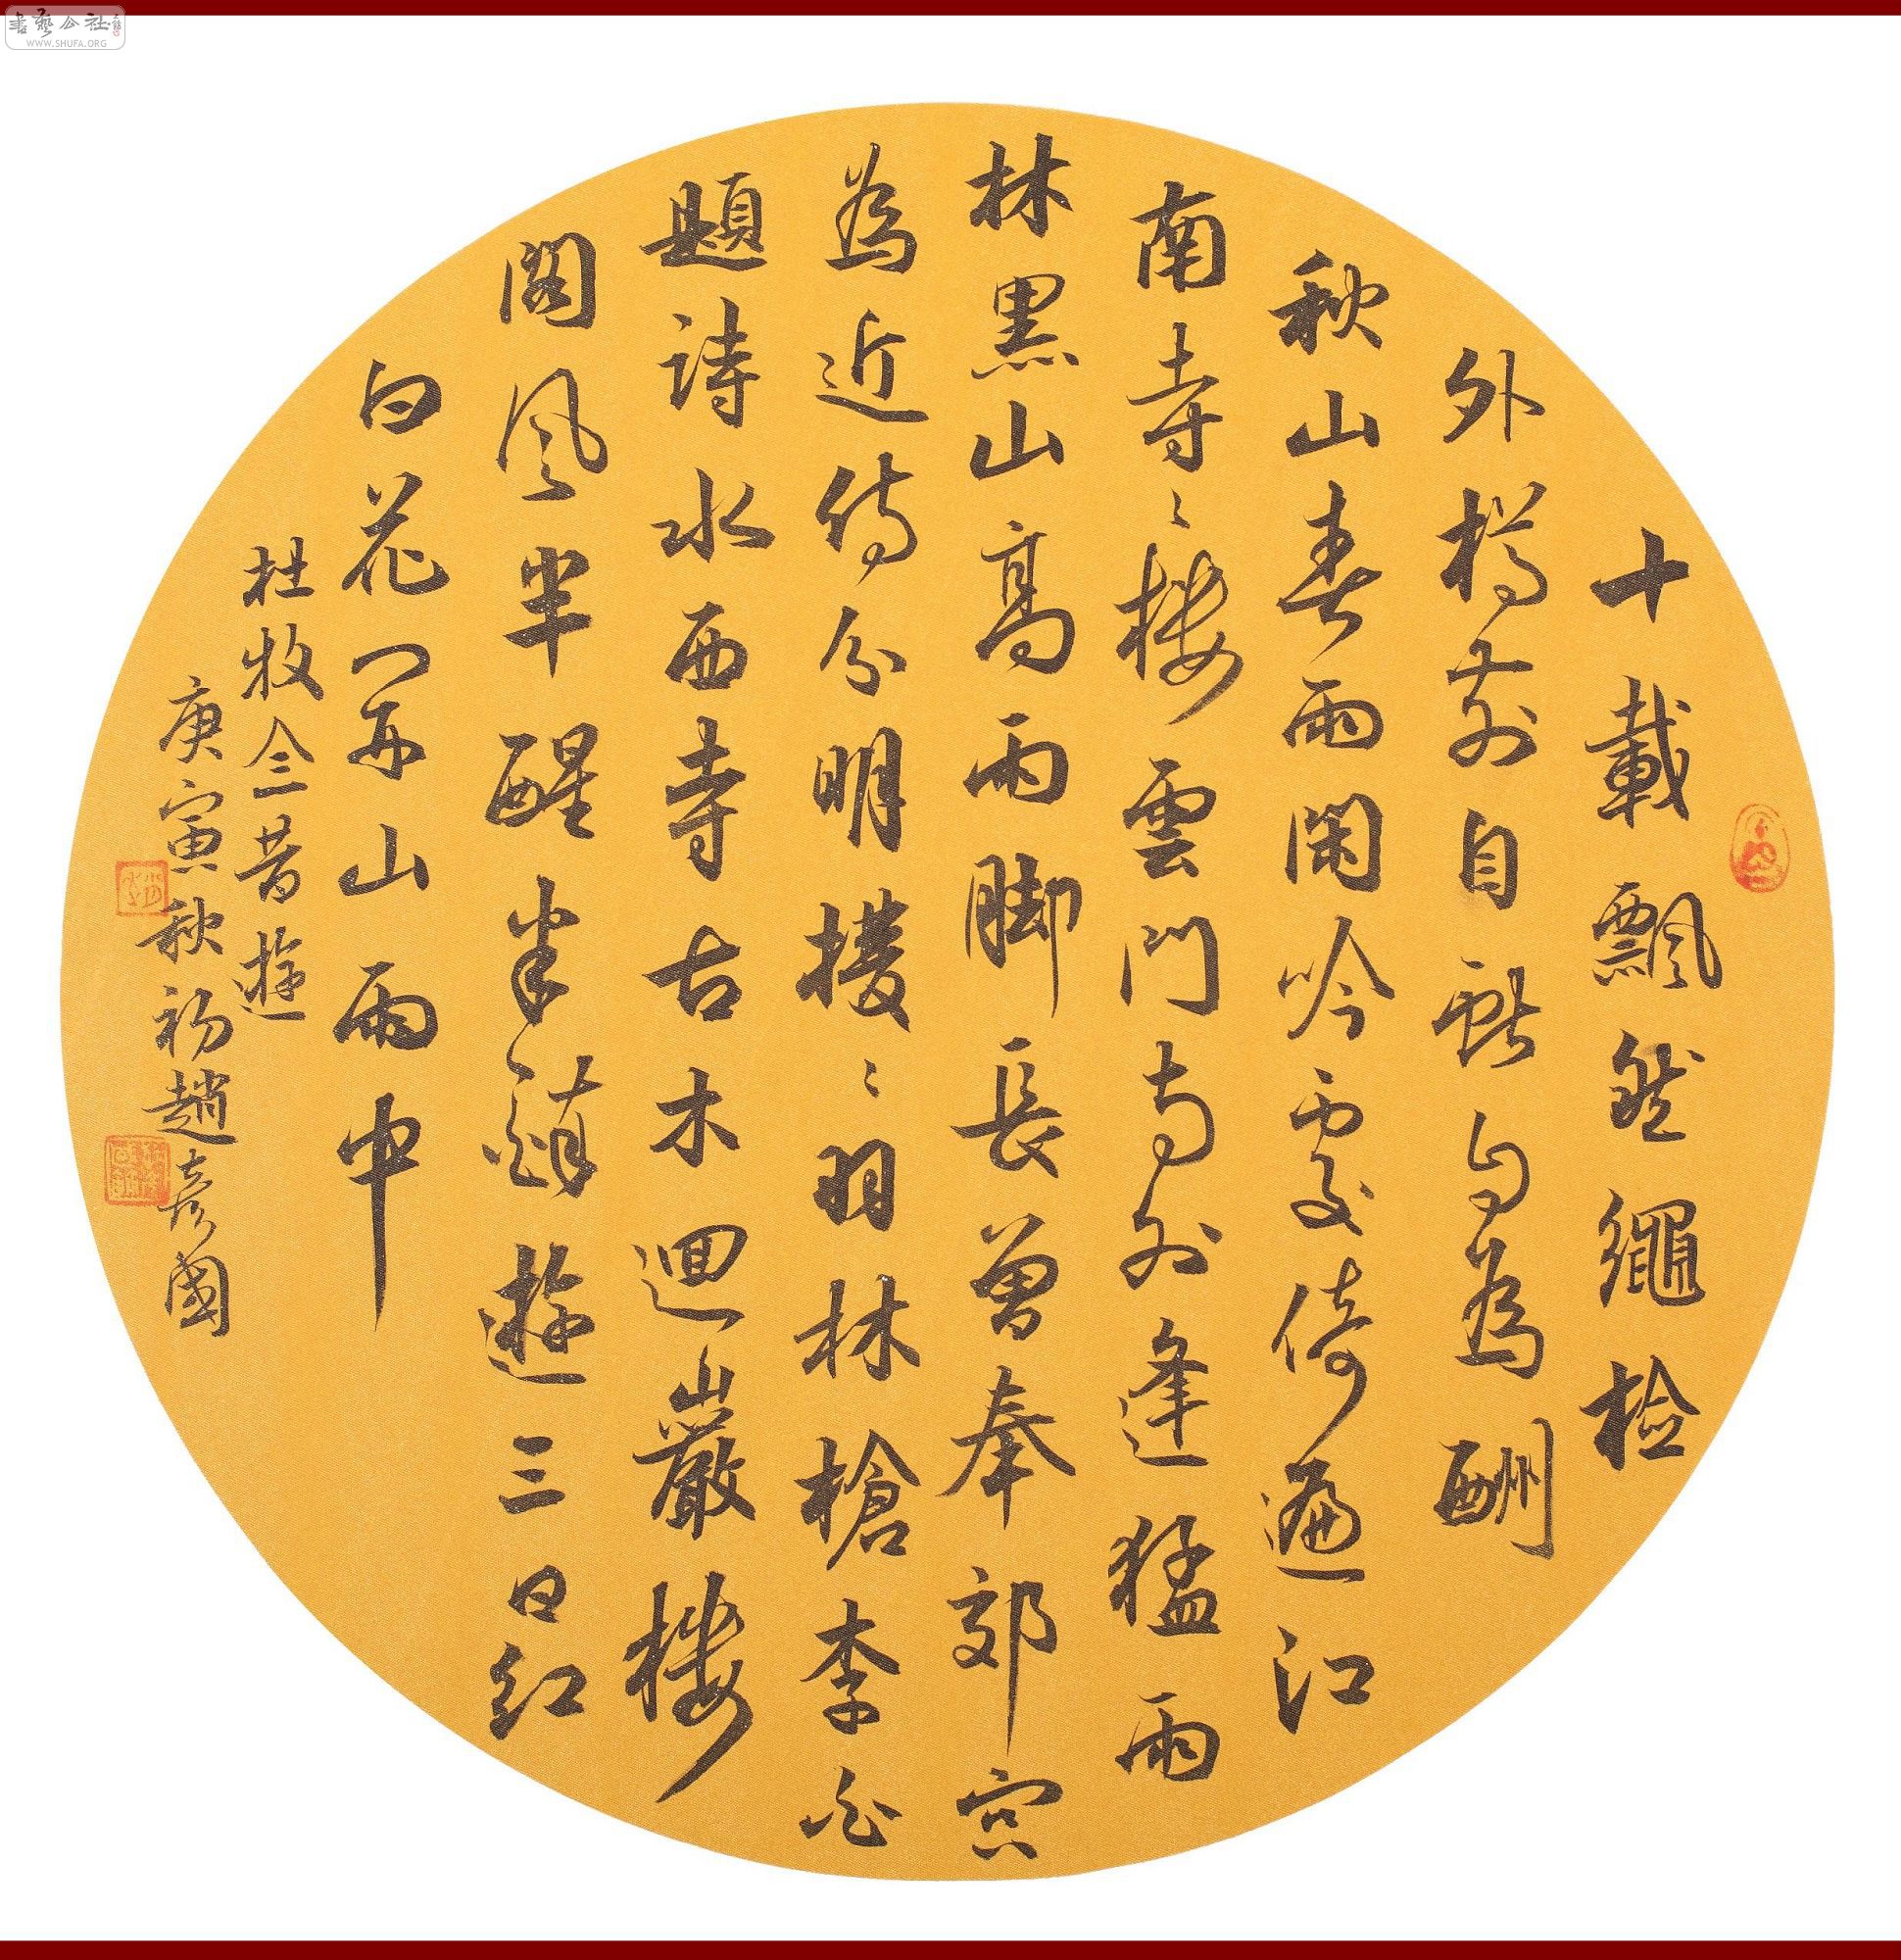 書藝公社
WWW.SHUFA.ORG
十載飄然繩檢
外樽前自獻自為酬
秋山春雨閑吟處倚遍江
南寺々樓雲門寺外逢猛雨
林黑山高雨脚長曾奉郊宮
為近侍分明㩳々羽林槍李白
題詩水西寺古木迴巖樓
閣風半醒半醉遊三日紅
白花開山雨中
杜牧念昔遊
庚寅秋初趙彥國